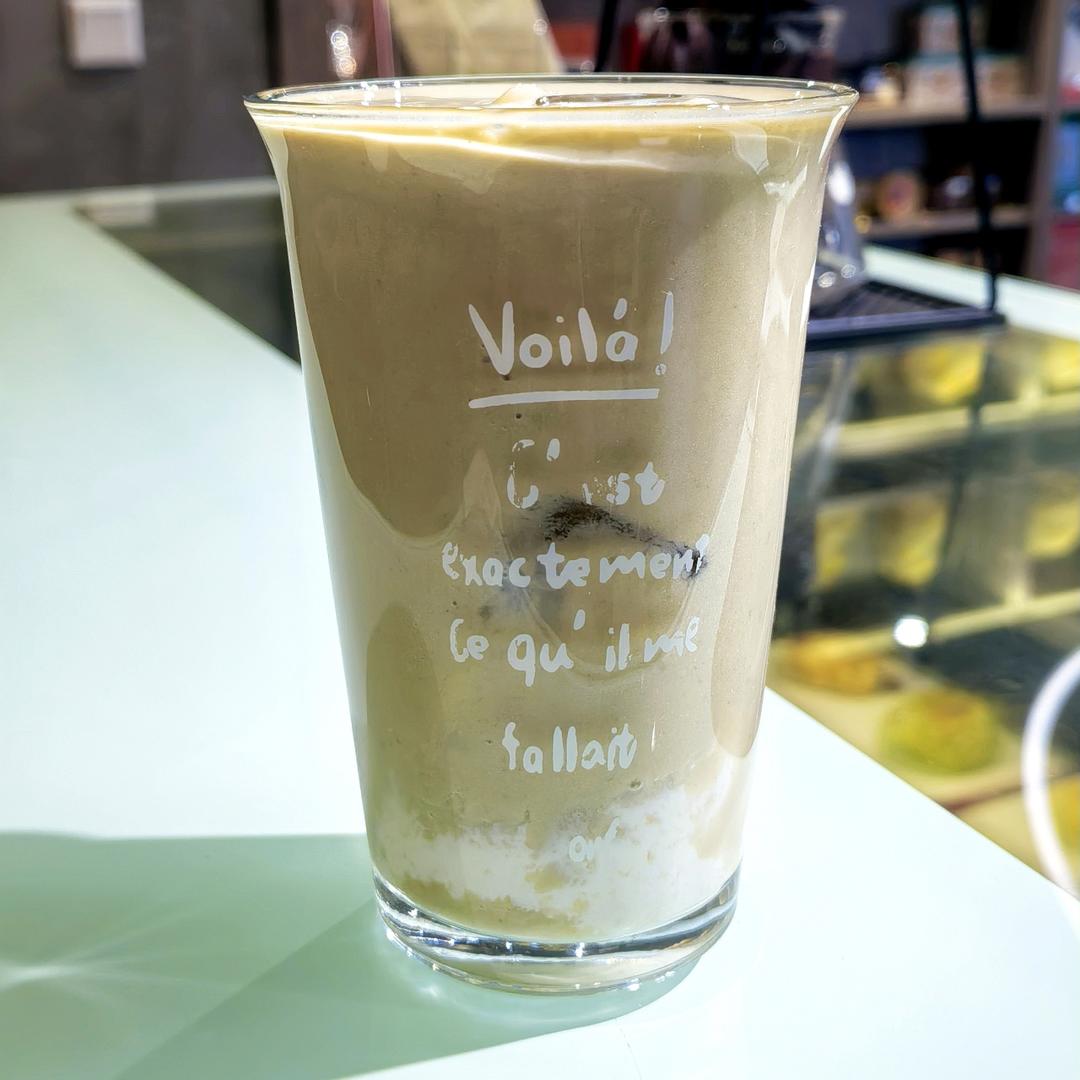 Voilá!
C'est
exactement
Ce qu'il me
fallait